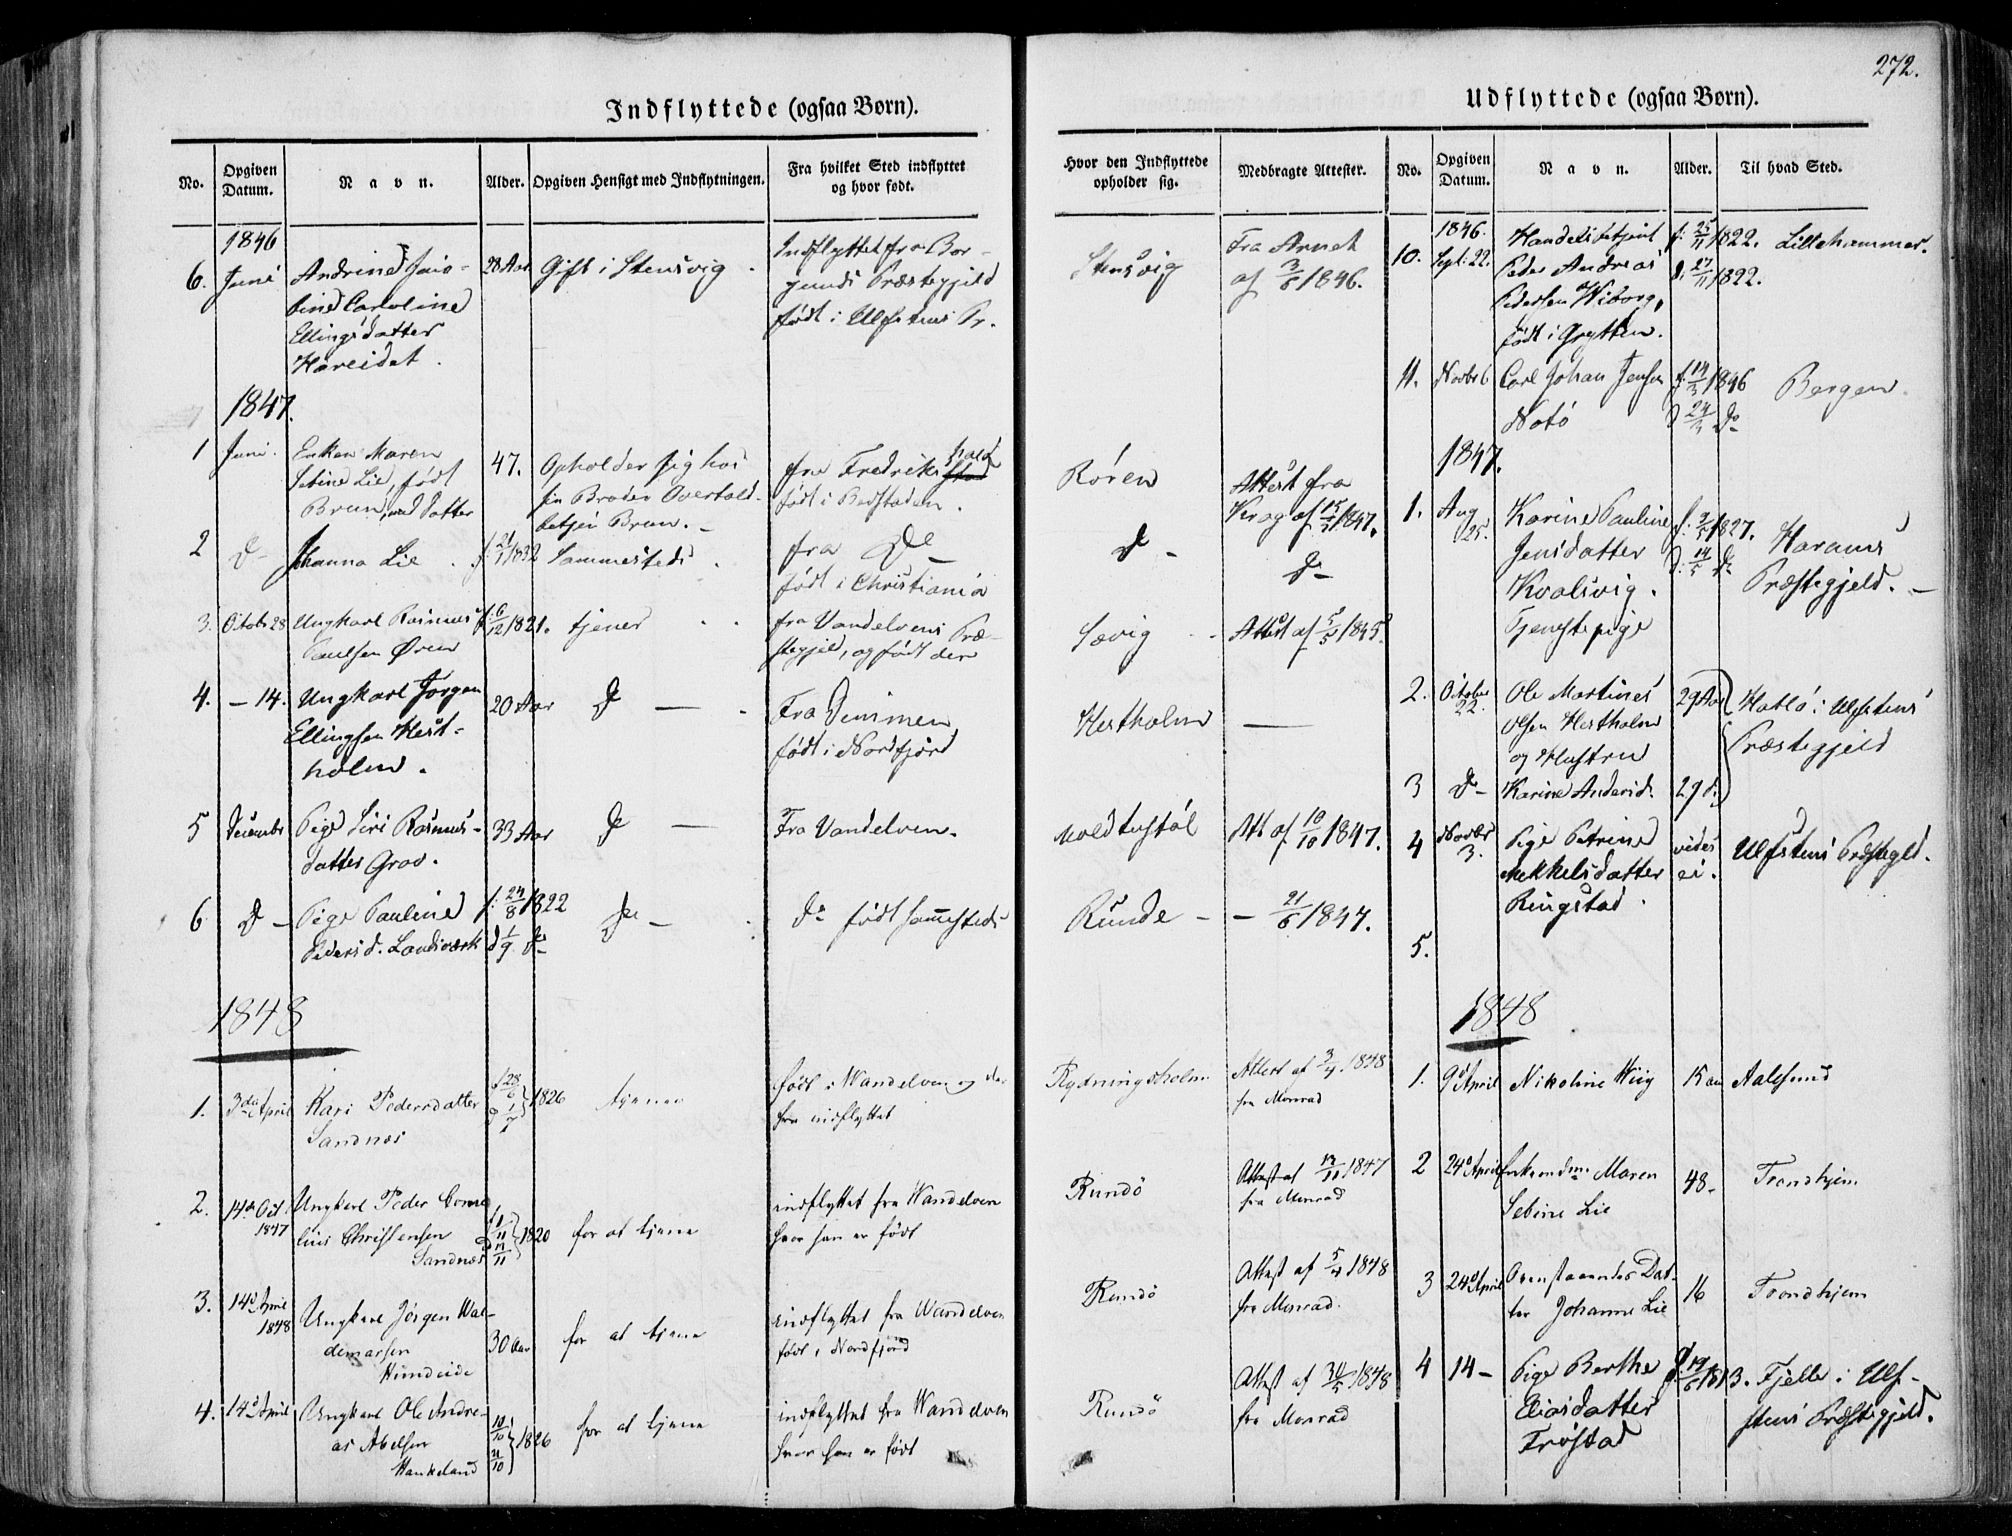 272.
Indflyttede (ogsaa Børn).
No.
Opgiven
Datum.
Navn.
Alder.
Opgiven Hensigt med Indflytningen.
Fra hvilket Sted indflyttet
og hvor født.
Hvor den Indflyttede
opholder sig.
Medbragte Attester.
1846
6. Juni
Andrine
Caroline
Ellingsdatter
Hareidet.
28 Aar
Gift i Stensvig
Indflyttet fra Bor-
gunds Præstegjeld
født i Ulfstens Pr.
Stensvig
Fra Arnet
af 3/6 1846.
1847.
1 Juni.
Enken Maren
Sebine Lie, født
Brun, med datter
47.
Opholder sig hos
sin Broder Overtold-
betjen Brun.
fra Fredrikshald
født i
Røren
Attest fra
Krag af 15/5 1847.
2 Do-
Johanna Lie
f. 21/1 1832
Sammesteds
fra Do
født i Christiania
Do -
Do -
3. Octobr 28
Ungkarl Rasmus
Paulsen Øren
f. 6/12 1821.
tjener
fra Vandelvens Præ-
stegjeld, og født der
Sævig
Attest af 5/5 1845.
4. - 14.
Ungkarl Jørgen
Ellingsen Hest-
holm.
20 Aar
Do -
Fra Vemmen
født i Nordfjord
Hestholm
5 Decembr
Pige Siri Rasmus-
datter Grov.
33 Aar
Do -
Fra Vandelven.
Moldtustøl
Att. af 10/10 1847.
6 Do -
Pige Pauline
Pedersd. Landsværk
f. 24/8 1822
d 1/9 Do
Do -
Do født sammesteds
Runde
- 21/6 1847.
1848
1. 3de April
Kari Pedersdatter
Sandnes
f 28/6 1826
tjener
født i Wandelven og der-
fra indflyttet
Rydningsholm
Attest af 3/4 1848
fra Monrad
2. 14de Oct
1847
Ungkarl Peder Corne
lius Christensen
Sandnes
1820
for at tjene
indflyttet fra Wandelven
hvor han er født
Rundø
Attest af 13/11 1847
fra Monrad
3. 14de April
1848
Ungkarl Jørgen Wal-
demarsen
Hundeide
30 Aar
for at tjene
indflyttet fra Wandelven
født i Nordfjord
Rundø
Attest af 5/4 1848
fra Monrad.
4. 14de April
Ungkarl Ole Andre-
as Abelsen
Hankeland
10/10 21/10 1826
for at tjene
indflyttet fra Wandelven
hvor han er født
Rundø
Attest af 1848
fra Monrad
Udflyttede (ogsaa Børn).
No.
Opgiven
Datum.
Navn.
Alder.
Til hvad Sted.
1846.
10. Sept. 22.
Handelsbetjent
Peder Andreas
Pedersen Wiborg,
født i Grytten.
f. 25/11 1822.
d. 27/11 1822.
Lillehammer.
11. Novbr 6
Carl Johan Jensen
Notø
f. 14/3 1846
d 24/3 Do
Bergen.
1847.
1. Aug
25.
Karine Pauline
Jensdatter
Kvalsvig.
Tjenstepige
f. 9/5 1827.
d. 14/5 Do
Harams
Præstegjeld. -
2. October
22.
Ole Martines
Olsen Hestholm
og Hustru
29 Aar
Hatlø i Ulfstens
Præstegjeld
3 Do -
Karine Andersd.
29 d.
4 Novbr
3.
Pige Petrine
Mekkelsdatter
Ringstad.
vides
ei.
Ulfstens Præstegld.
5.
1848
1. 9de April
Nikoline Wiig
15 aar
Aalesund
2 24de April
Maren
Sebine Lie
48-
Trondhjem
3 24de April
Ovenstaaendes Dat-
ter Johanne Lie
16
Trondhjem
4 14 -
Pige Berthe
Eliasdatter
Frøstad
1813.
Fjelle i Ulf-
stens Præstegjeld.